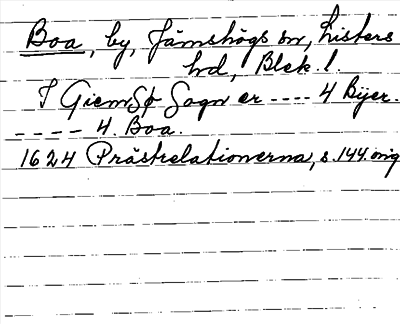 Boa, by, Jämshögs sn, Listers
hd, Blek. l.
I Giemsø Sogn er ---- 4 Bÿer.
---- 4. Boa.
1624 Prästrelationerna, s. 144. orig